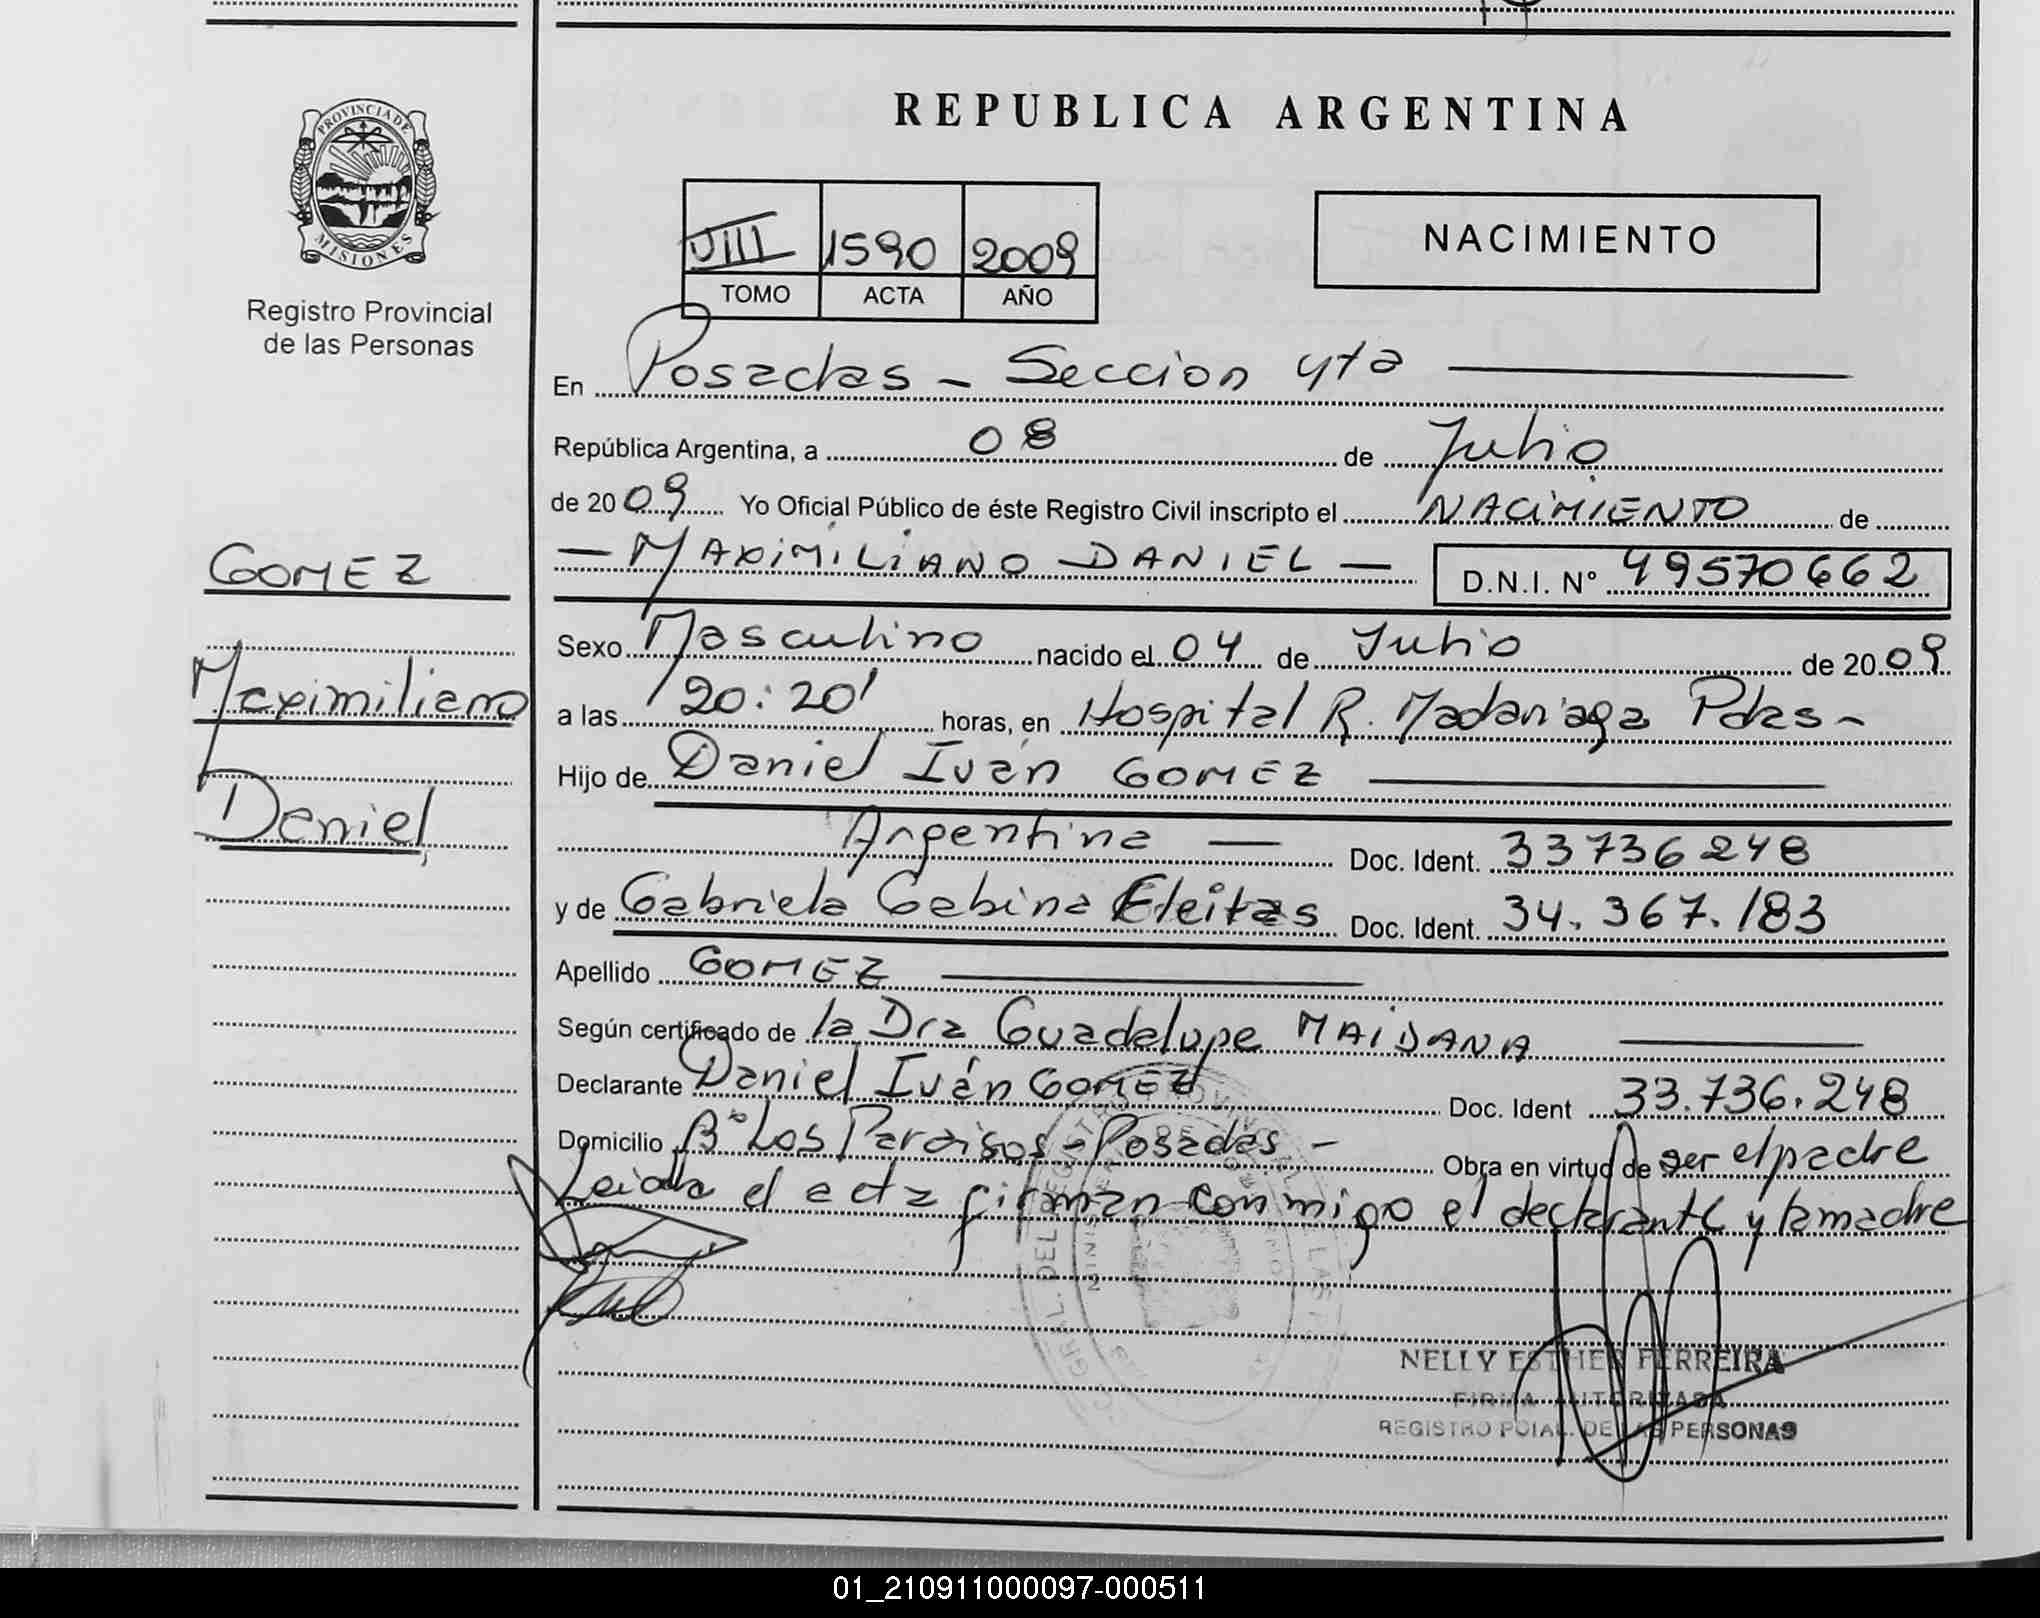 PROVINCIA DE
MISIONES
Registro Provincial
de las Personas
GOMEZ
Maximiliano
Daniel
REPUBLICA ARGENTINA
VIII 1590 2009
TOMO ACTA AÑO
NACIMIENTO
En Posadas - Seccion 4ta
República Argentina, a 08 de Julio
de 2009 Yo Oficial Público de éste Registro Civil inscripto el NACIMIENTO de
- MAXIMILIANO DANIEL - D.N.I. N° 49570662
Sexo Masculino nacido el 04 de Julio de 2009
a las 20:20' horas, en Hospital R. Madariaga Pdas -
Hijo de Daniel Iván GOMEZ
Argentina - Doc. Ident. 33736248
y de Gabriela Gabina Eleitas Doc. Ident. 34.367.183
Apellido GOMEZ
Según certificado de la Dra Guadalupe MAIDANA
Declarante Daniel Iván GOMEZ Doc. Ident 33.736.248
Domicilio B° Los Paraisos - Posadas - Obra en virtud de ser el padre
Leida el acta firman conmigo el declarante y la madre
NELLY ESTHER FERREIRA
FIRMA AUTORIZADA
REGISTRO PCIAL. DE LAS PERSONAS
01_210911000097-000511